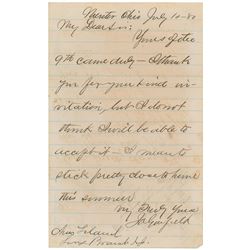 Mentor Ohio July 10-80
My Dear Sir:
Yours of the
9th came duly - I thank
you for your kind in-
vitation, but I do not
think I will be able to
accept it - I mean to
stick pretty close to home
this summer
Very Truly Yours
J A Garfield
Chas
Long Branch N.J.